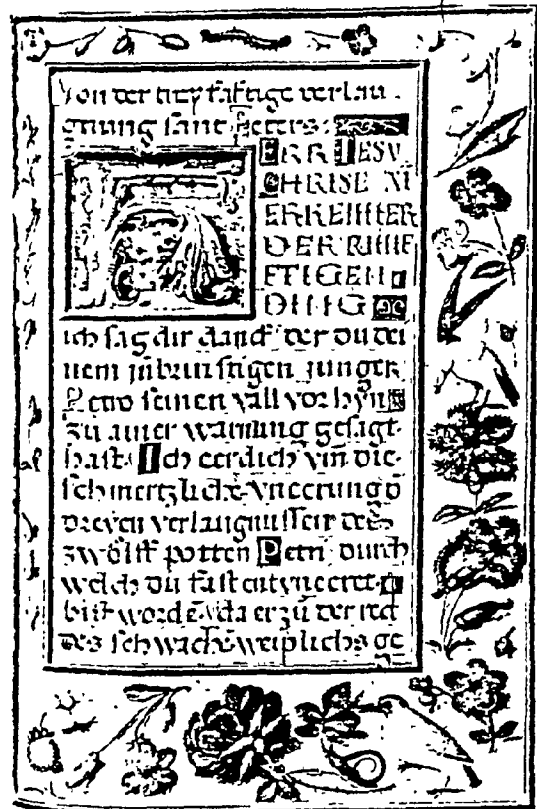 Von der trey fältige verlau
gnung sant Peters:
ERR IESV
CHRISE XI
ERKENNER
DER KUNF
FTIGEN
DING
ich sag dir danck der du dei
nem inbrunstigen junger
Petro seinen vall vorhyn
zu ainer warnung gesagt
hast. Ich eer dich vm̄ die
schmertzliche vneerung d̄
dreyen verlaugnussen des
zwölff potten Petri durch
welch du fast entvneeret
bist wordē da er zu der red
des schwachē weiplichs ge